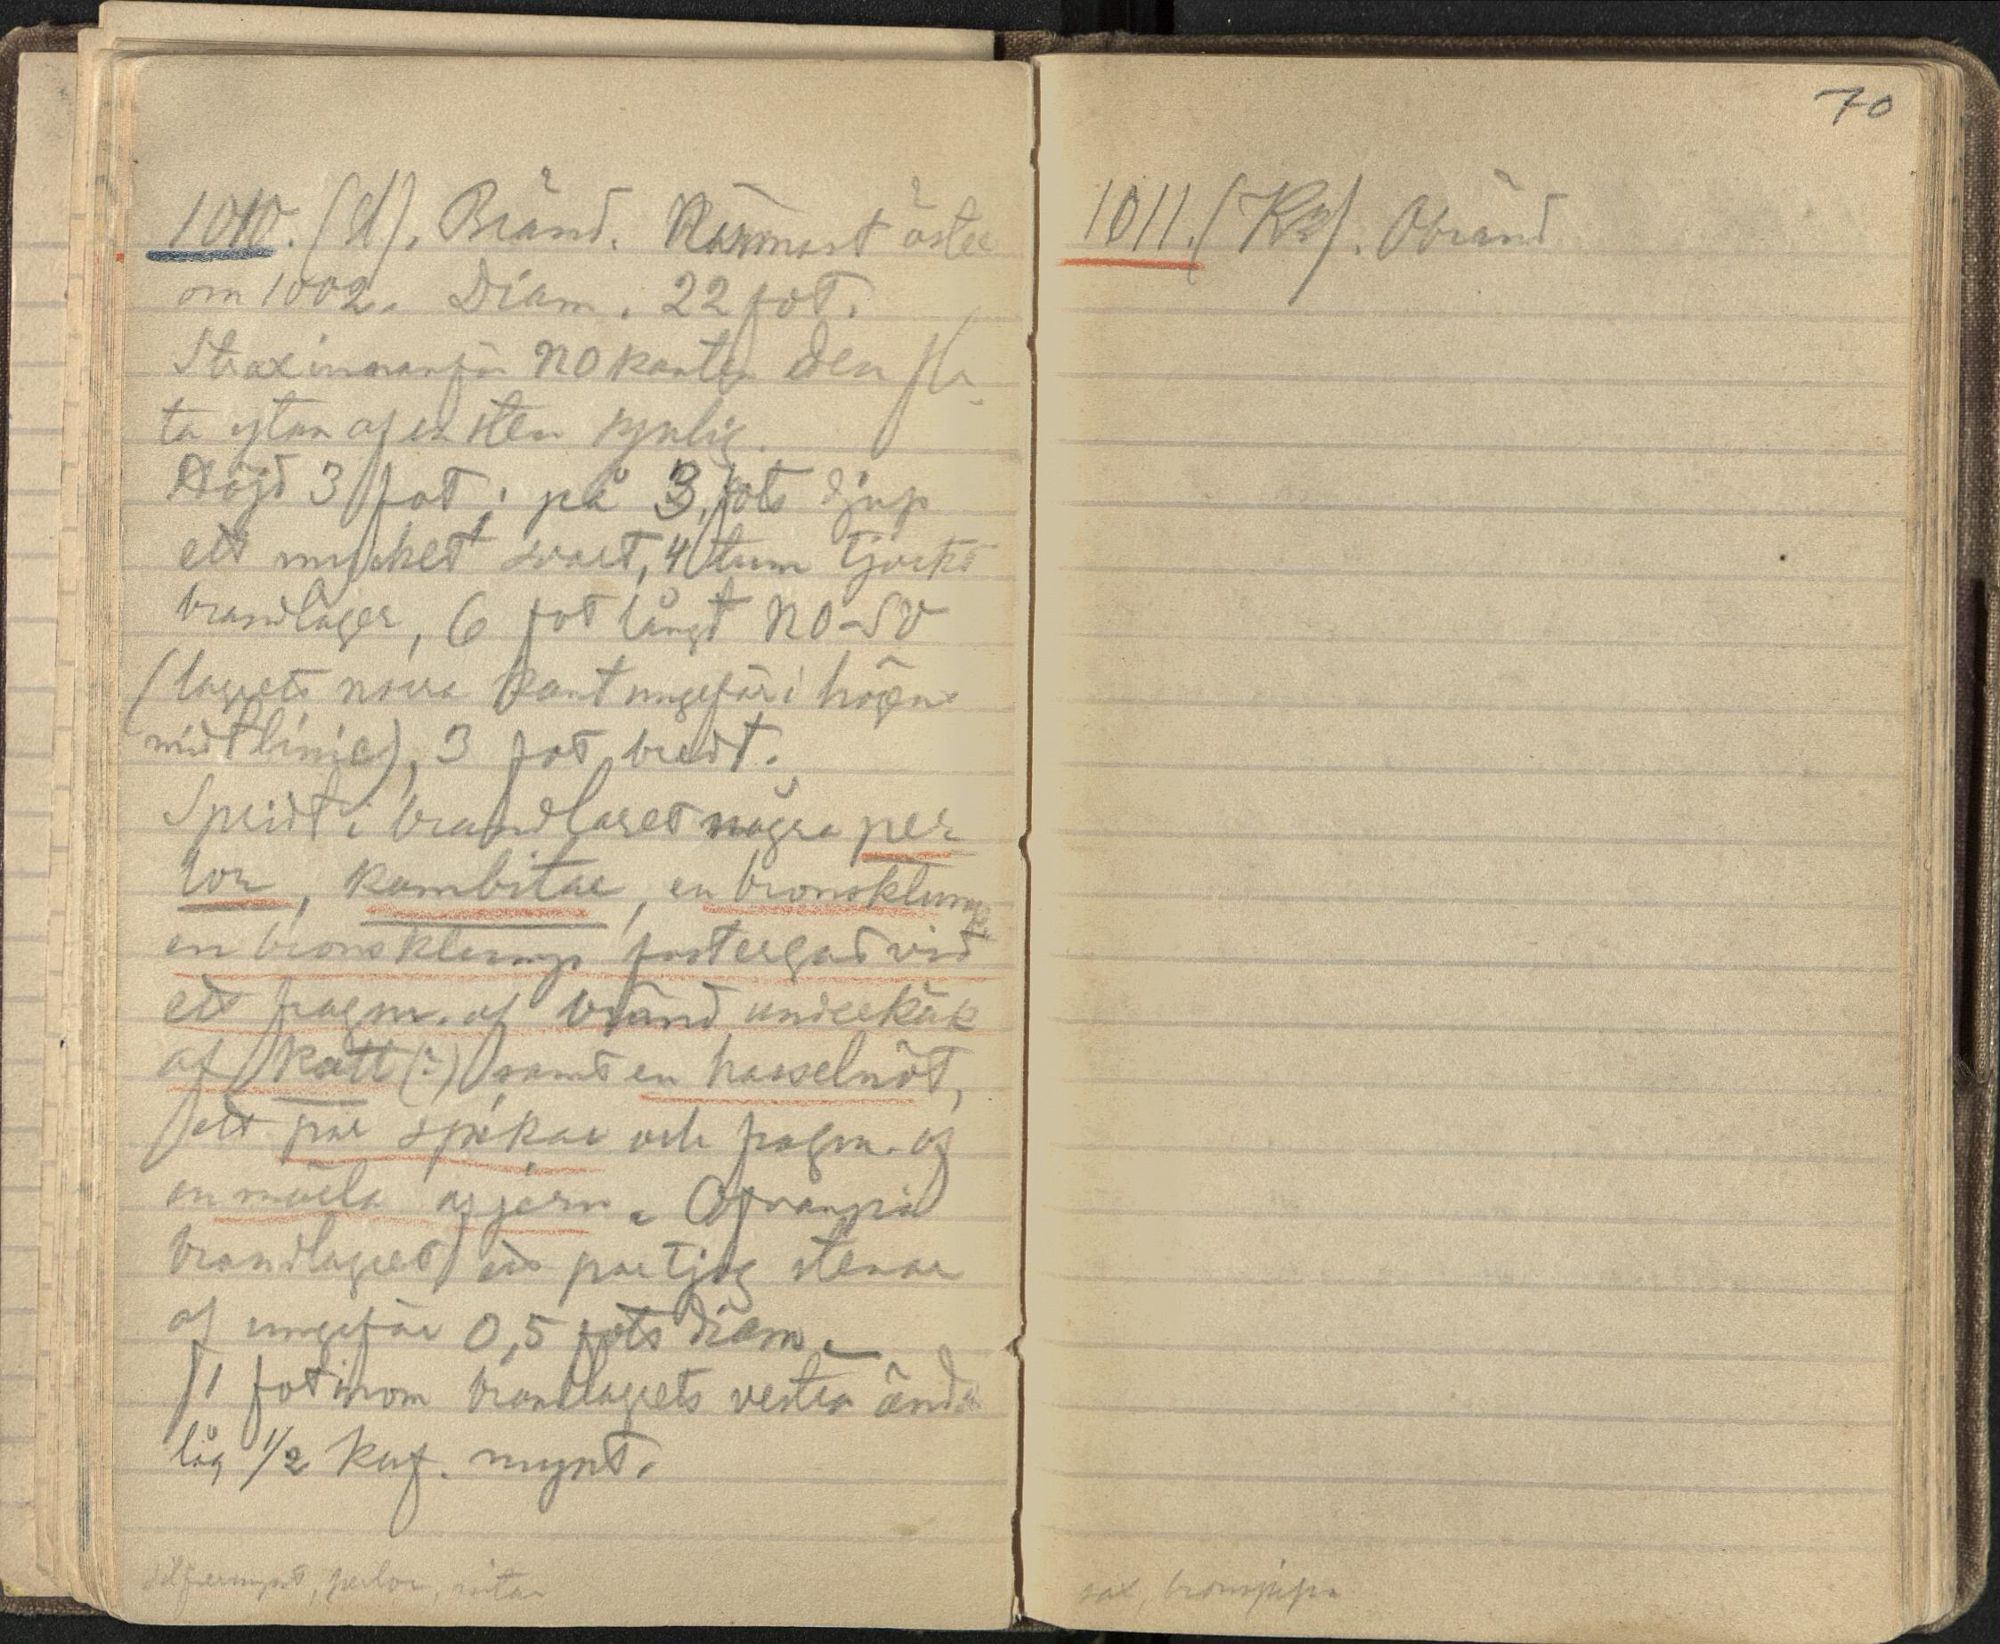 1010. (A). Bränd. Närmast öster
om 1002. Diam. 22 fot.
Strax innanför NO kanten den fla-
ta ytan af en sten synlig.
Höjd 3 fot; på 3 fots djup
ett mycket svart, 4 tum tjockt
brandlager, 6 fot långt NO-SV
(lagrets norra kant ungefär i högens
midtlinie), 3 fot bredt.
Spridt i brandlagret några per
lor, kambitar, en bronsklump
en bronsklump fastergad vid
ett fragm. af bränd underkäk
af katt (?) samt en hasselnöt,
ett par spikar och fragm. af
en märla af järn. Ofvanpå
brandlagret ett par tjog stenar
af ungefär 0,5 fots diam.
1 fot inom brandlagrets vestra ända
låg 1/2 kuf. mynt.
silfvermynt, perlor, nitar
70
1011. (Kr). Obränd
sax, bronspipa